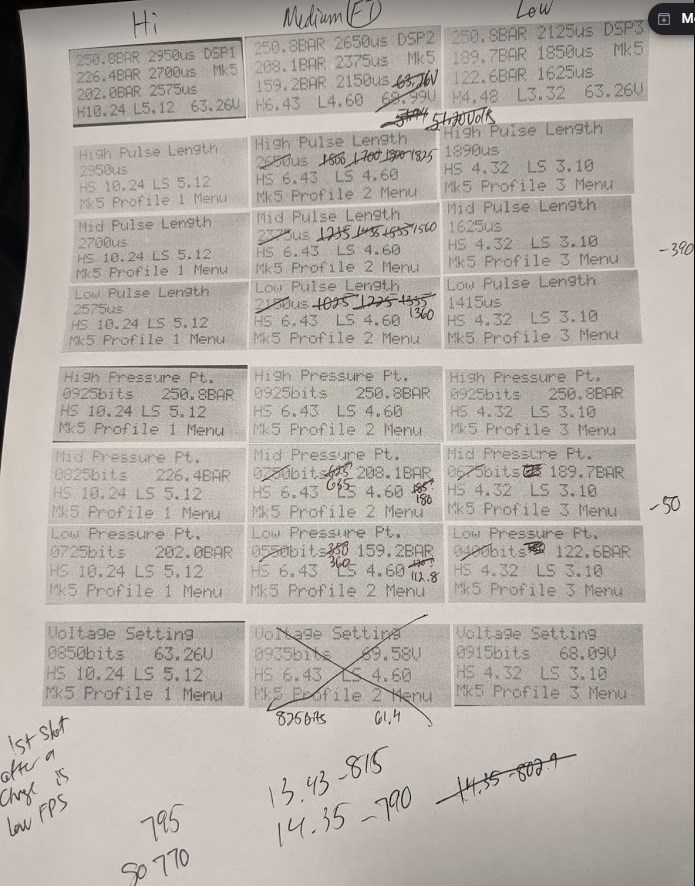 Hi
Medium (FT)
Low
250.8BAR 2950us DSP1
226.4BAR 2700us Mk5
202.0BAR 2575us
H10.24 L5.12 63.26V
250.8BAR 2650us DSP2
208.1BAR 2375us Mk5
159.2BAR 2150us 63.26V
H6.43 L4.60 68.99V
250.8BAR 2125us DSP3
189.7BAR 1850us Mk5
122.6BAR 1625us
H4.48 L3.32 63.26V
High Pulse Length
2950us
HS 10.24 LS 5.12
Mk5 Profile 1 Menu
High Pulse Length
2650us 1806 1700 1800 1825
HS 6.43 LS 4.60
Mk5 Profile 2 Menu
High Pulse Length
1890us
HS 4.32 LS 3.10
Mk5 Profile 3 Menu
Mid Pulse Length
2700us
HS 10.24 LS 5.12
Mk5 Profile 1 Menu
Mid Pulse Length
2375us 1235 1435 1535 1560
HS 6.43 LS 4.60
Mk5 Profile 2 Menu
Mid Pulse Length
1625us
HS 4.32 LS 3.10
Mk5 Profile 3 Menu
-390
Low Pulse Length
2575us
HS 10.24 LS 5.12
Mk5 Profile 1 Menu
Low Pulse Length
2150us 1025 1225 1335
HS 6.43 LS 4.60 1360
Mk5 Profile 2 Menu
Low Pulse Length
1415us
HS 4.32 LS 3.10
Mk5 Profile 3 Menu
High Pressure Pt.
0925bits 250.8BAR
HS 10.24 LS 5.12
Mk5 Profile 1 Menu
High Pressure Pt.
0925bits 250.8BAR
HS 6.43 LS 4.60
Mk5 Profile 2 Menu
High Pressure Pt.
0925bits 250.8BAR
HS 4.32 LS 3.10
Mk5 Profile 3 Menu
Mid Pressure Pt.
0825bits 226.4BAR
HS 10.24 LS 5.12
Mk5 Profile 1 Menu
Mid Pressure Pt.
0750bits 625 208.1BAR
635
HS 6.43 LS 4.60 185?
180
Mk5 Profile 2 Menu
Mid Pressure Pt.
0675bits 189.7BAR
HS 4.32 LS 3.10
Mk5 Profile 3 Menu
-50
Low Pressure Pt.
0725bits 202.0BAR
HS 10.24 LS 5.12
Mk5 Profile 1 Menu
Low Pressure Pt.
0550bits 350 159.2BAR
360
HS 6.43 LS 4.60
112.8
Mk5 Profile 2 Menu
Low Pressure Pt.
0400bits 122.6BAR
HS 4.32 LS 3.10
Mk5 Profile 3 Menu
Voltage Setting
0850bits 63.26V
HS 10.24 LS 5.12
Mk5 Profile 1 Menu
Voltage Setting
0935bits 69.58V
HS 6.43 LS 4.60
Mk5 Profile 2 Menu
825bits 61.4
Voltage Setting
0915bits 68.09V
HS 4.32 LS 3.10
Mk5 Profile 3 Menu
1st Shot
after a
Chrge is
low FPS
795
So 770
13.43-815
14.35-790
14.35-802.9